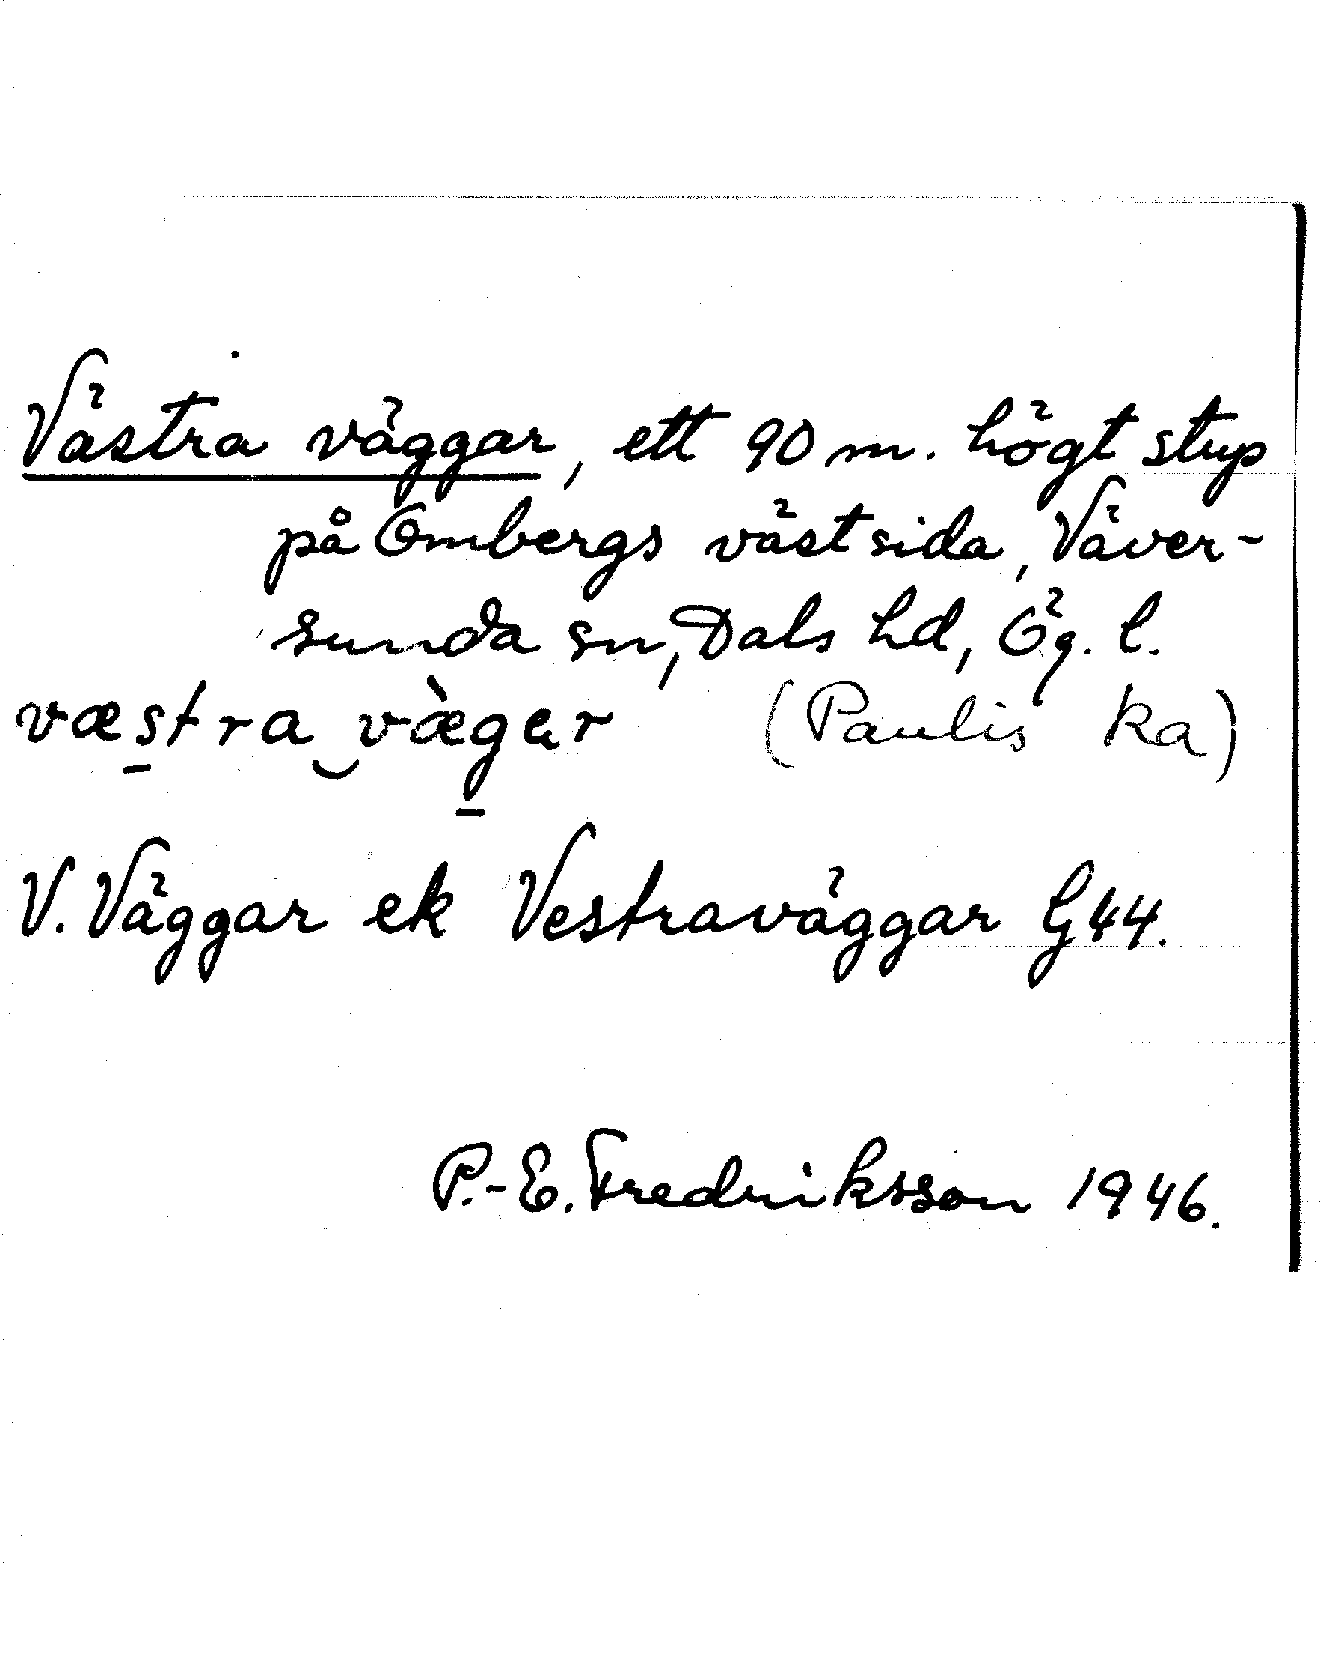 Västra väggar, ett 90 m. högt stup
på Ombergs västsida, Väver-
sunda sn, Dals hd, Ög. l.
væs̲tra‿væ̀g̲ar (Paulis ka)
V. Väggar ek Vestraväggar G44.
P.-E. Fredriksson 1946.